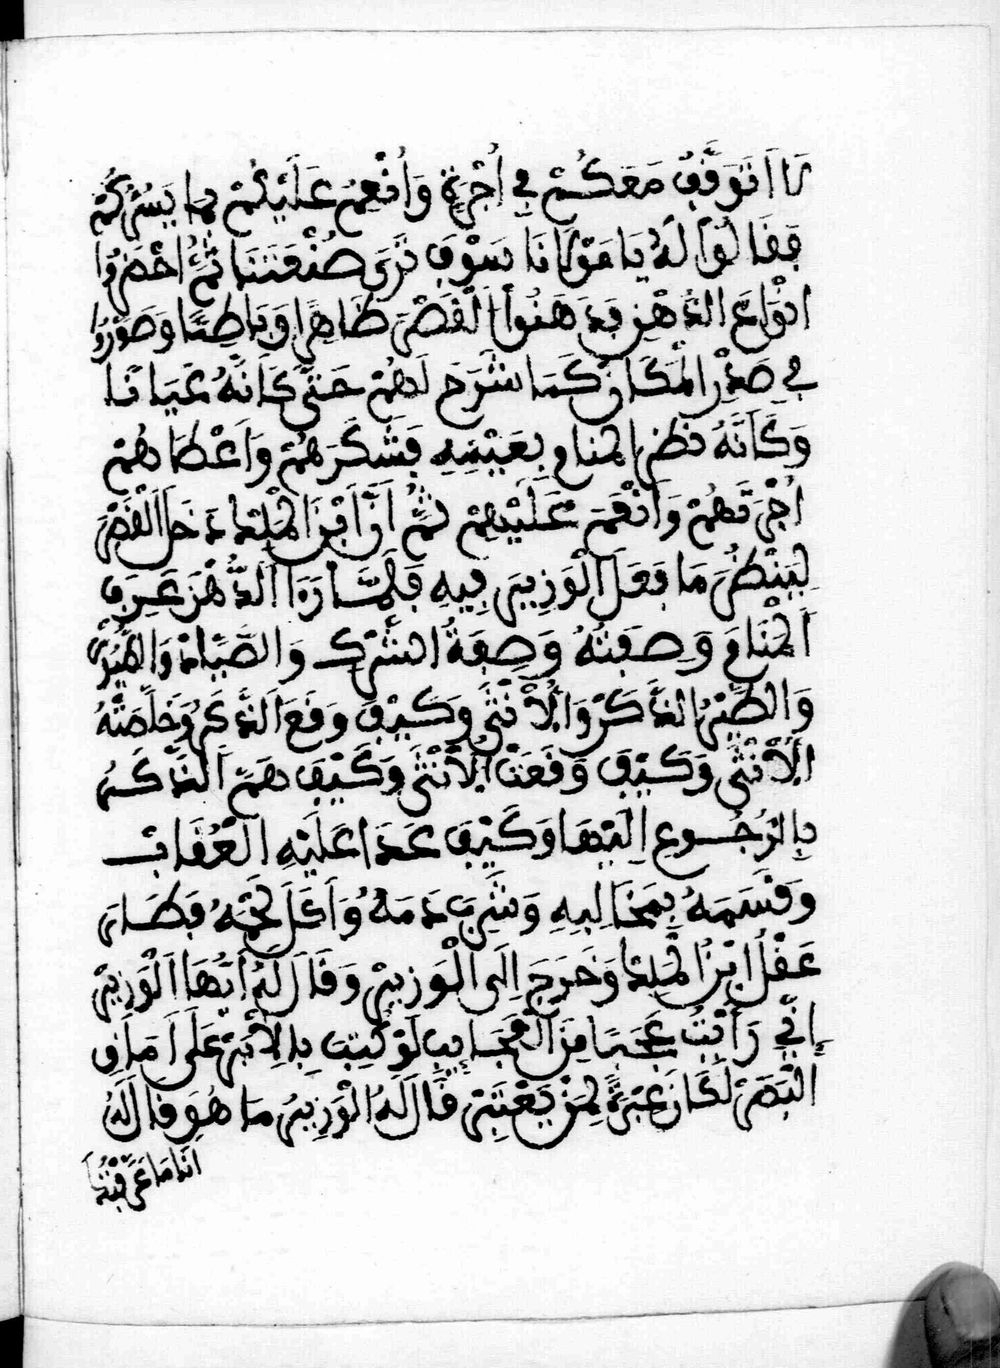 لَا اَتَوَفَّفُ مَعَكُمْ فِي اُجْرَةٍ وَاُنْعِمُ عَلَيْكُمْ بِمَا يَسُرُّكُمْ
فَقَالُوا لَهُ يَا مَوْلَانَا سَوْفَ تَرَى صُنْعَتَنَا ثُمَّ اَحْضَرُوا
اَنْوَاعَ الدُّهْنِ فَدَهَنُوا الْقَصْرَ ظَاهِرًا وَبَاطِنًا وَصَوَّرُوا
فِي صَدْرِ الْمَكَانِ كَمَا شَرَحَ لَهُمْ حَتَّى كَاَنَّهُ عَيَانًا
وَكَاَنَّهُ نَظَرَ الْمَنَامَ بِعَيْنِهِ فَشَكَرَهُمْ وَاَعْطَاهُمْ
اُجْرَتَهُمْ وَاَنْعَمَ عَلَيْهِمْ ثُمَّ اَنَّ اَبْنَ الْمَلِكِ دَخَلَ الْقَصْرَ
لِيَنْظُرَ مَا فَعَلَ الْوَزِيرُ فِيهِ فَلَمَّا رَءَا الدُّهْنَ عَرَفَ
الْمَنَامَ وَصِفَتَهُ وَصِفَةُ الشَّرَكِ وَالصَّيَّادْ وَالطُّيُورْ
وَالطَّيْرُ الذَّكَرْ وَالْاُنْثَى وَكَيْفَ وَقَعَ الذَّكَرُ وَخَلَّصَتْهُ
الْاُنْثَى وَكَيْفَ وَقَعَتْ الْاُنْثَى وَكَيْفَ هَمَّ الذَّكَرُ
بِالرُّجُوعِ اِلَيْهَا وَكَيْفَ عَدَا عَلَيْهِ الْعُقَابْ
وَقَسَمَهُ بِمَخَالِبِهِ وَشَرِبَ دَمَهُ وَاَكَلَ لَحْمَهُ فَطَارَ
عَقْلُ ابْنُ الْمَلِكِ وَخَرَجَ اِلَى الْوَزِيرْ وَقَالَ لَهُ اَيُّهَا الْوَزِيرْ
اِنِّي رَاَيْتُ عَجَبًا مِنَ الْعَجَايِبِ لَوْ كُتِبَ بِالْاِبَرْ عَلَى اَمَاقِ
الْبَصَرْ لَكَانَ عِبْرَةً لِمَنْ يَعْتَبِرْ قَالَ لَهُ الْوَزِيرُ مَا هُوَ قَالَ لَهُ
اَنَا مَا عَرَفْتُهُ